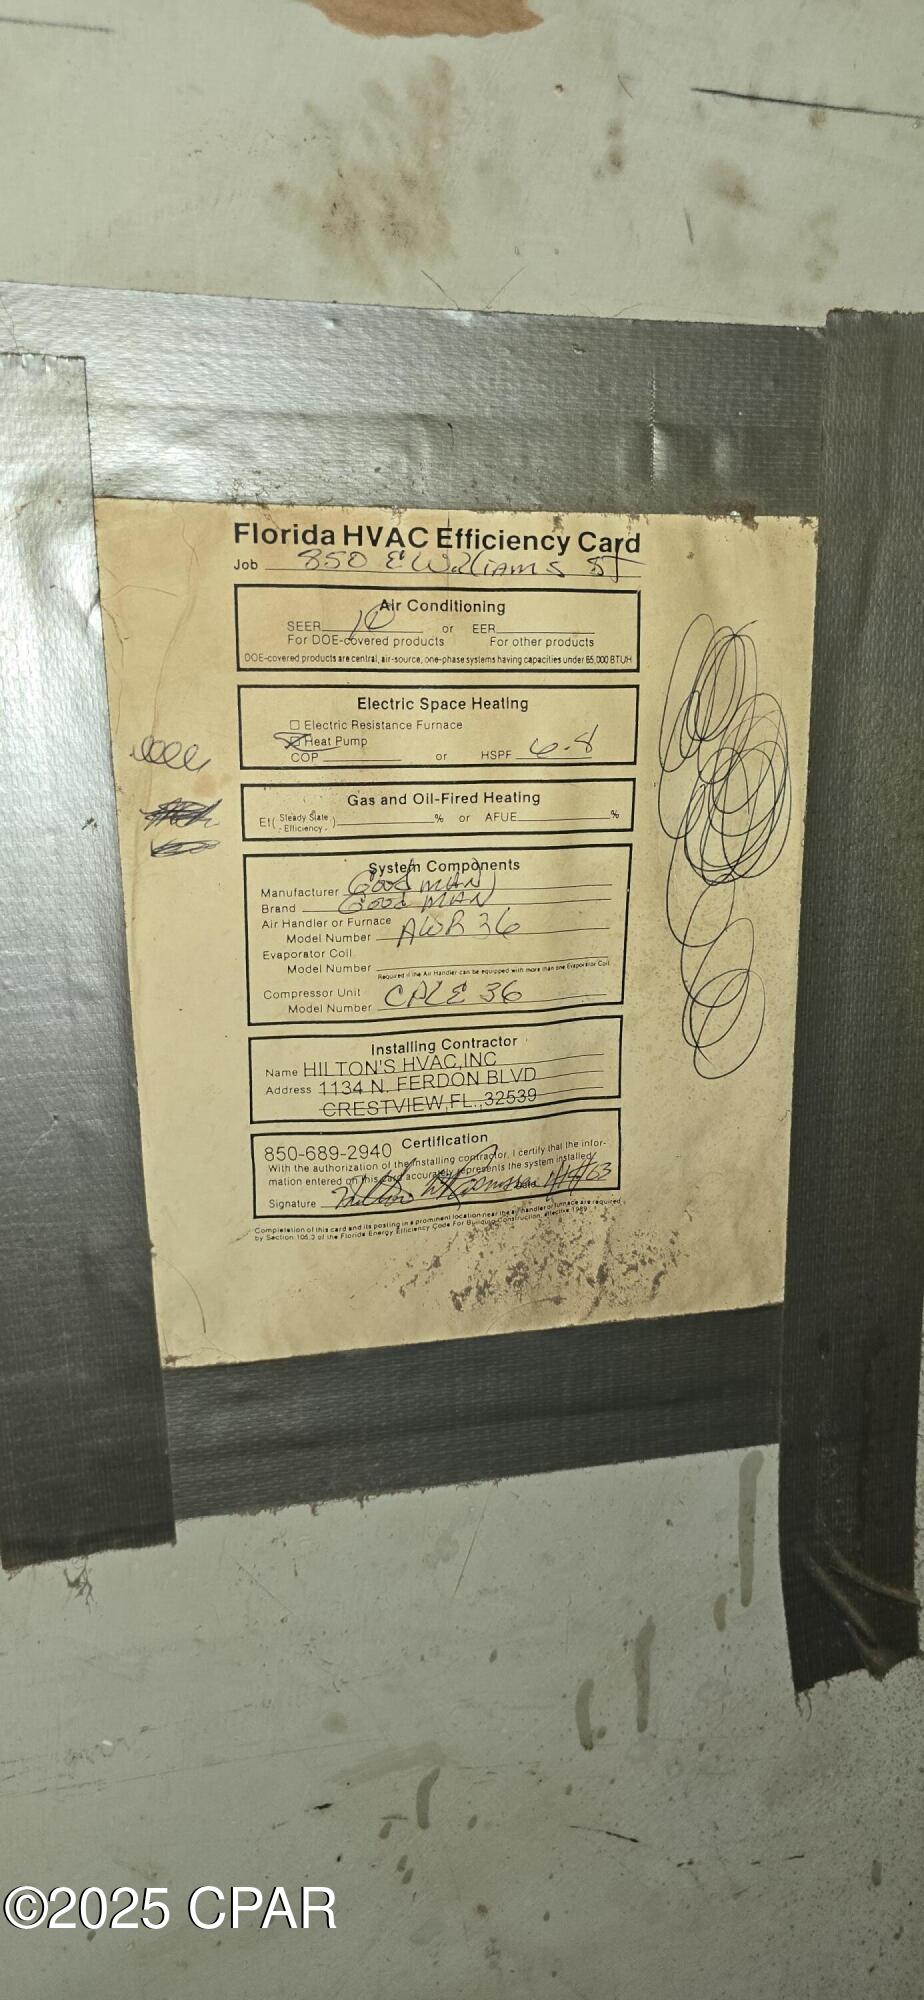 Florida HVAC Efficiency Card
Job 850 E Williams St
Air Conditioning
SEER 10 or EER
For DOE-covered products For other products
DOE-covered products are central, air-source, one-phase systems having capacities under 65,000 BTUH
Electric Space Heating
Electric Resistance Furnace
Heat Pump
COP or HSPF 6.8
Gas and Oil-Fired Heating
Et (Steady State Efficiency) % or AFUE %
System Components
Manufacturer Good MAN
Brand Good MAN
Air Handler or Furnace
Model Number AWR 36
Evaporator Coil
Model Number Required if the Air Handler can be equipped with more than one Evaporator Coil
Compressor Unit
Model Number 36
Installing Contractor
Name HILTON'S HVAC, INC
Address 1134 N. FERDON BLVD
CRESTVIEW, FL., 32539
850-689-2940 Certification
With the authorization of the installing contractor, I certify that the infor-
mation entered on this card accurately represents the system installed
Signature Date
Completion of this card and its posting in a prominent location near the air handler or furnace are required
by Section 106.3 of the Florida Energy Efficiency Code For Building Construction, effective 1989
©2025 CPAR